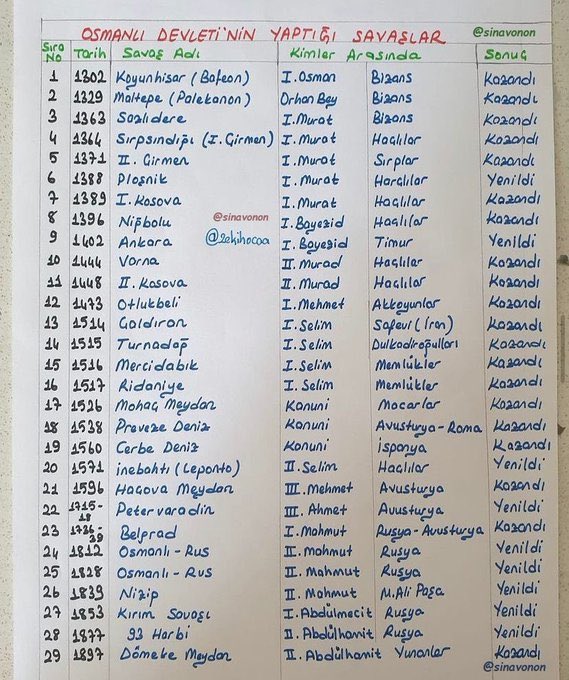 OSMANLI DEVLETİ'NİN YAPTIĞI SAVAŞLAR @sinavonon
Sıra No Tarih Savaş Adı Kimler Arasında Sonuç
1 1302 Koyunhisar (Bafeon) I. Osman Bizans Kazandı
2 1329 Maltepe (Palekanon) Orhan Bey Bizans Kazandı
3 1363 Sazlıdere I. Murat Bizans Kazandı
4 1364 Sırpsındığı (I. Çirmen) I. Murat Haçlılar Kazandı
5 1371 II. Çirmen I. Murat Sırplar Kazandı
6 1388 Ploşnik I. Murat Harçlılar Yenildi
7 1389 I. Kosova I. Murat Haçlılar Kazandı
8 1396 Niğbolu @sinavonon I. Bayezid Haçlılar Kazandı
9 1402 Ankara @zekihocaa I. Bayezid Timur Yenildi
10 1444 Varna II. Murad Haçlılar Kazandı
11 1448 II. Kosova II. Murad Haçlılar Kazandı
12 1473 Otlukbeli I. Mehmet Akkoyunlar Kazandı
13 1514 Çaldıran I. Selim Safevi (İran) Kazandı
14 1515 Turnadağ I. Selim Dulkadiroğulları Kazandı
15 1516 Mercidabık I. Selim Memlükler Kazandı
16 1517 Ridaniye I. Selim Memlükler Kazandı
17 1526 Mohaç Meydan Kanuni Macarlar Kazandı
18 1538 Preveze Deniz Kanuni Avusturya-Roma Kazandı
19 1560 Cerbe Deniz Kanuni İspanya Kazandı
20 1571 İnebahtı (Leponto) II. Selim Haçlılar Yenildi
21 1596 Haçova Meydan III. Mehmet Avusturya Kazandı
22 1715-18 Petervaradin III. Ahmet Avusturya Yenildi
23 1736-39 Belgrad I. Mahmut Rusya-Avusturya Kazandı
24 1812 Osmanlı-Rus II. Mahmut Rusya Yenildi
25 1828 Osmanlı-Rus II. Mahmut Rusya Yenildi
26 1839 Nizip II. Mahmut M. Ali Paşa Yenildi
27 1853 Kırım Savaşı I. Abdülmecit Rusya Yenildi
28 1877 93 Harbi II. Abdülhamit Rusya Yenildi
29 1897 Dömeke Meydan II. Abdülhamit Yunanlar Kazandı
@sinavonon